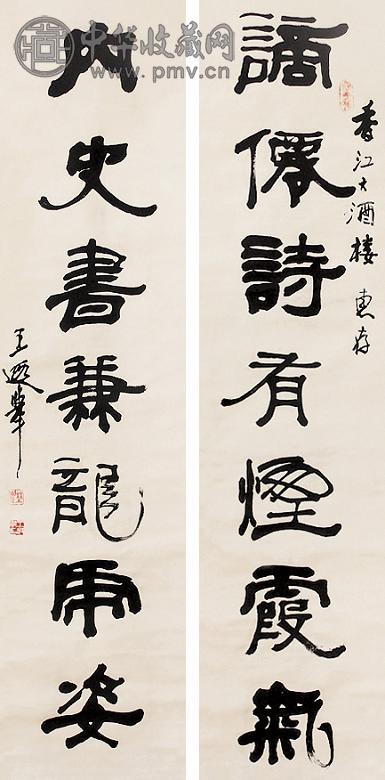 謫僊詩有煙霞氣
香江大酒樓 惠存
内史書兼龍虎姿
王遐舉
中华收藏网
www.pmv.cn